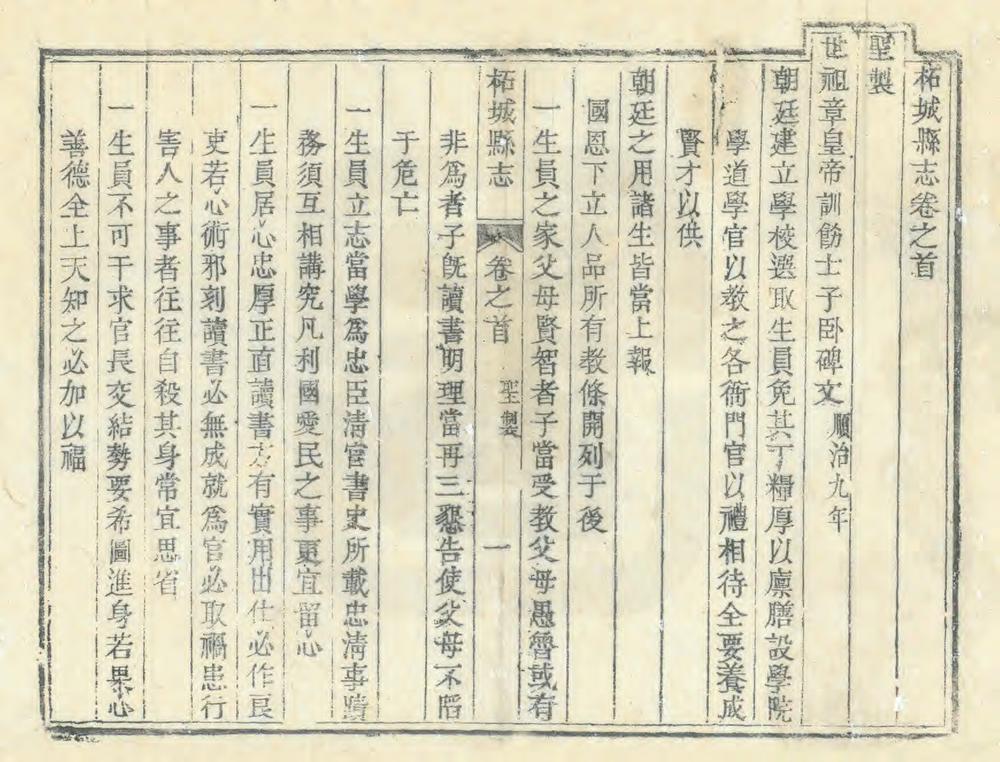 柘城縣志卷之首
聖製
世祖章皇帝訓飭士子卧碑文 順治九年
朝廷建立學校選取生員免其丁糧厚以廪膳設學院
學道學官以教之各衙門官以禮相待全要養成
賢才以供
朝廷之用諸生皆當上報
國恩下立人品所有教條開列于後
一生員之家父母賢智者子當受教父母愚魯或有
柘城縣志 卷之首 聖製 一
非爲者子旣讀書明理當再三懇告使父母不陷
于危亡
一生員立志當學爲忠臣清官書史所載忠清事蹟
務須互相講究凡利國愛民之事更宜留心
一生員居心忠厚正直讀書方有實用出仕必作良
吏若心術邪刻讀書必無成就爲官必取禍患行
害人之事者往往自殺其身常宜思省
一生員不可干求官長交結勢要希圖進身若果心
善德全上天知之必加以福